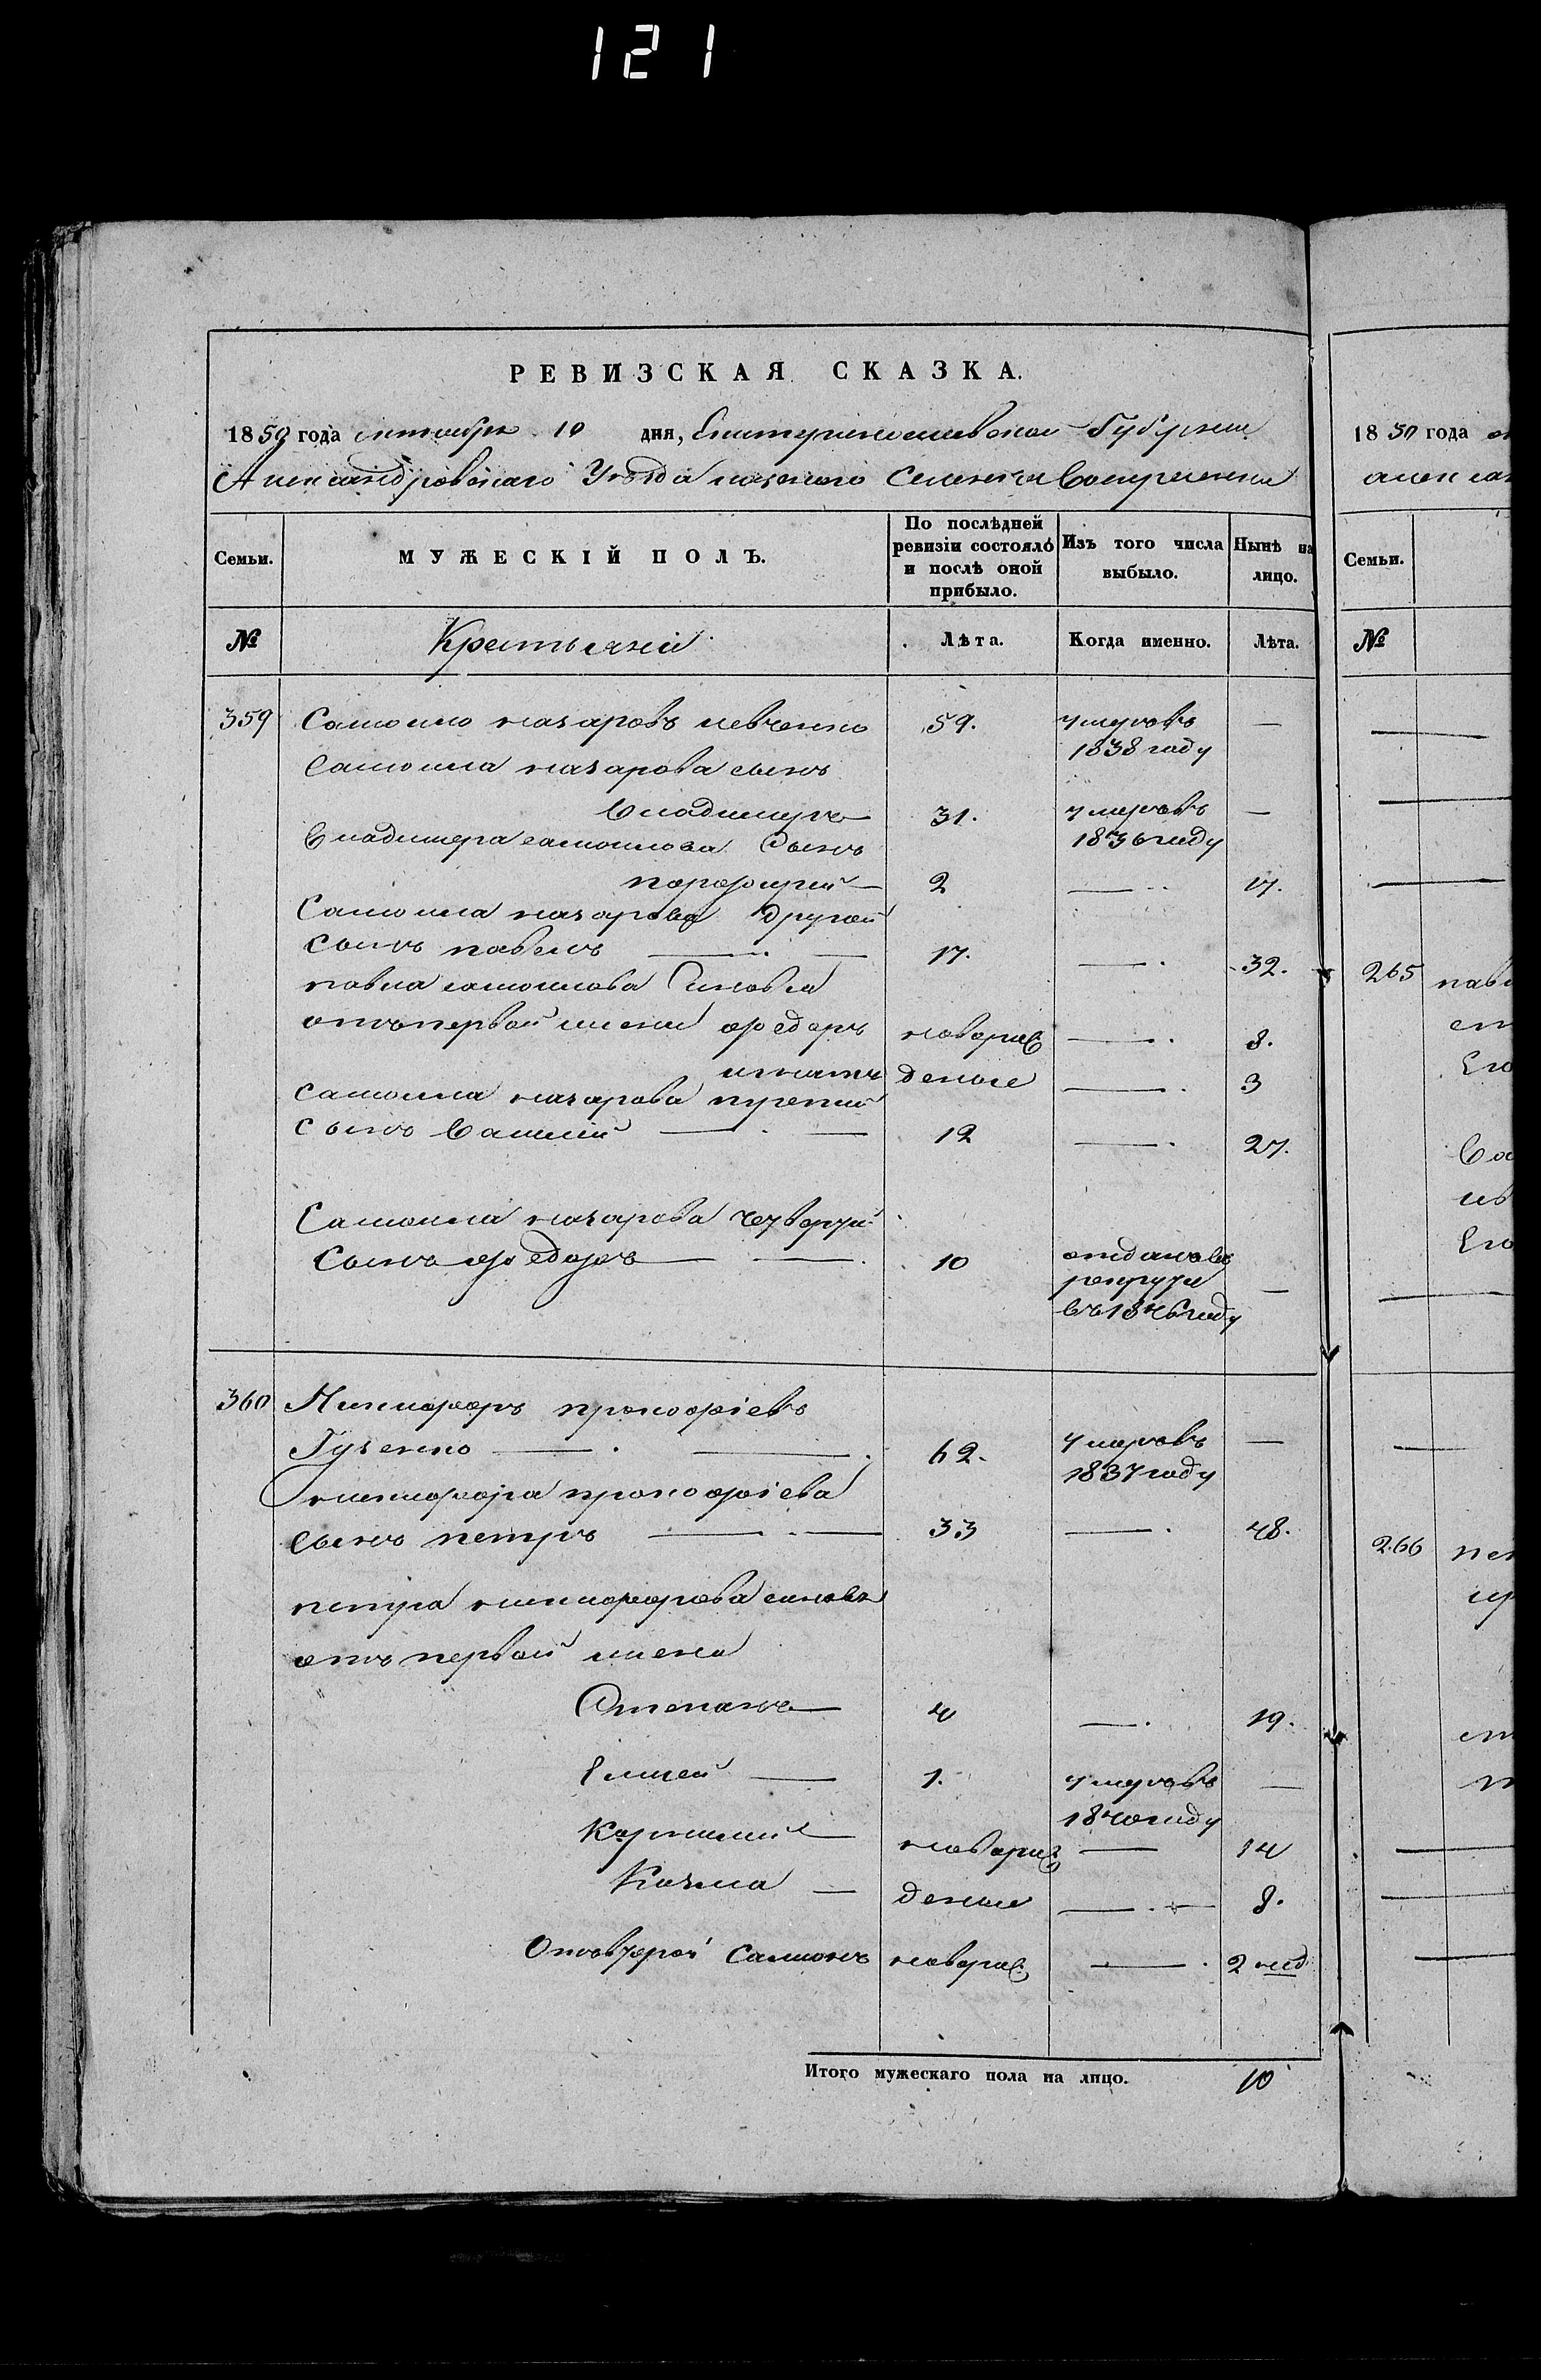 121
РЕВИЗСКАЯ СКАЗКА.
1850 года октября 10 дня, Екатеринославской Губернии
Александровскаго Уѣзда казенаго Селения
Семьи.
МУЖЕСКІЙ ПОЛЪ.
По послѣдней ревизіи состояло и послѣ оной прибыло.
Изъ того числа выбыло.
Нынѣ на лицо.
№ Крестьяни Лѣта. Когда именно. Лѣта.
359 Самоило назаровъ 59. умеръвъ —
1838 году
Самоила назарова сынъ
Владимеръ 31. умеръвъ —
1836 году
Владимера самоилова Сынъ
порфирий 2 — 17.
Самоила назарова Другой
сынъ павелъ 17. — 32.
павла самоилова Сыновья
отъ первой жены федоръ новорож — 8.
игнатъ деные — 3
самоила назарова третий
сынъ Василий 12 — 27.
Самоила назарова четвертий
Сынъ федоръ 10 отданъ въ
рекруты —
въ 1846 году
360 Никифоръ прокофіевъ
Гузенко 62. умеръвъ —
1837 году
никифора прокофіева
сынъ петръ 33 — 48.
петра никифорова сыновя
отъ первой жены
Степанъ 4 — 19.
Елисей 1. умеръвъ —
1840 году
Корнилий новорож — 14
Козма деные — 8.
Отъ второй Самионъ новорож — 2 нед
Итого мужескаго пола на лицо. 10
1850 года
Семьи.
№
265
266